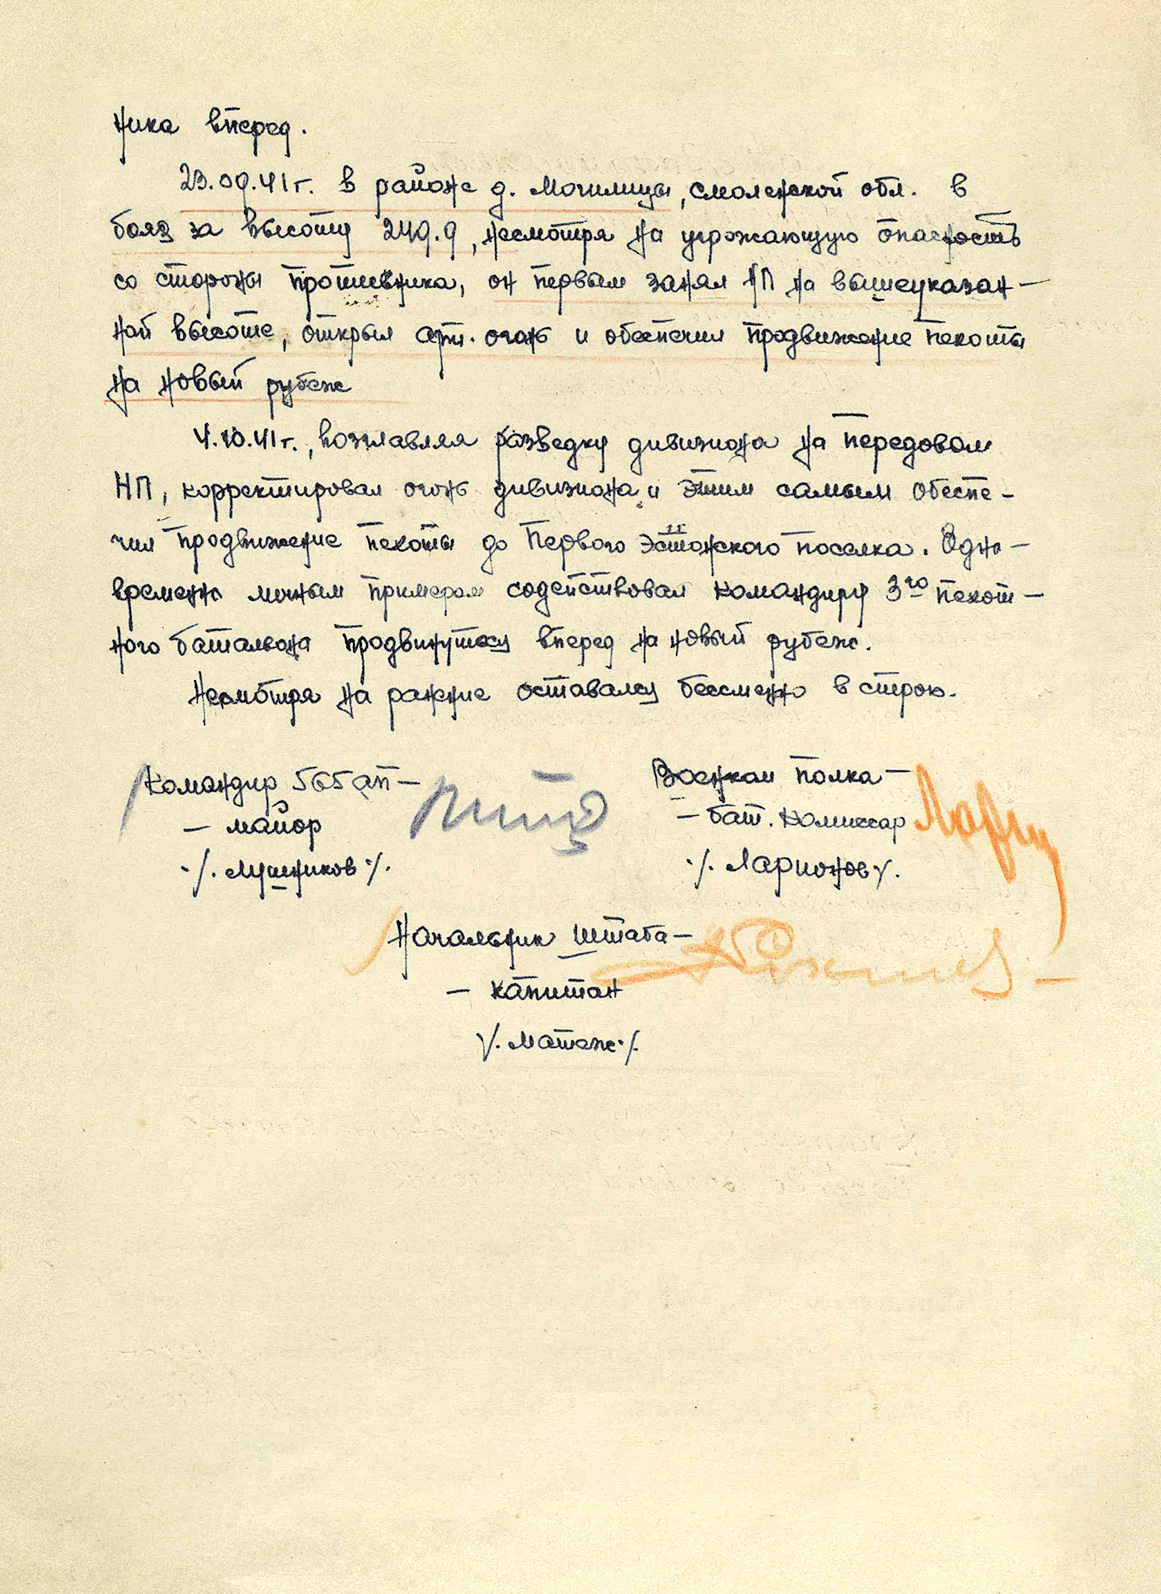 ника вперед.
23.09.41 г. в районе д. Могилицы, смоленской обл. в
бояз за высоту 249.9, несмотря на угрожающую опасность
со стороны противника, он первым занял НП на вышеуказан-
ной высоте, открыл арт. огонь и обеспечил продвижение пехоты
на новый рубеж
4.10.41 г., возглавляя разведку дивизиона на передовом
НП, корректировал огонь дивизиона и этим самым обеспе-
чил продвижение пехоты до Первого Эстонского поселка. Одно-
временно личным примером содействовал командиру 3го пехот-
ного батальона продвинуться вперед на новый рубеж.
Несмотря на ранние оставался бессменно в строю.
Командир 565 ап - Военком полка -
- майор - бат. комиссар
./. Лушников ./. ./. Ларионов ./.
Начальник штаба -
- капитан
./. Матеж ./.